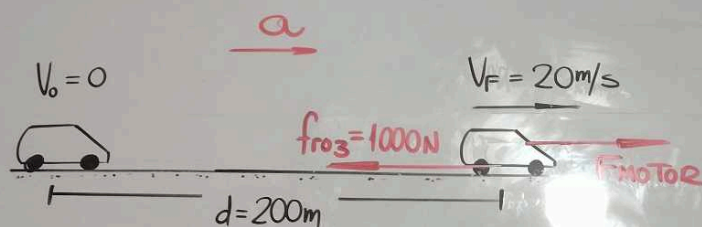 a
V₀ = 0
V_F = 20m/s
froz = 1000N
FMOTOR
d = 200m